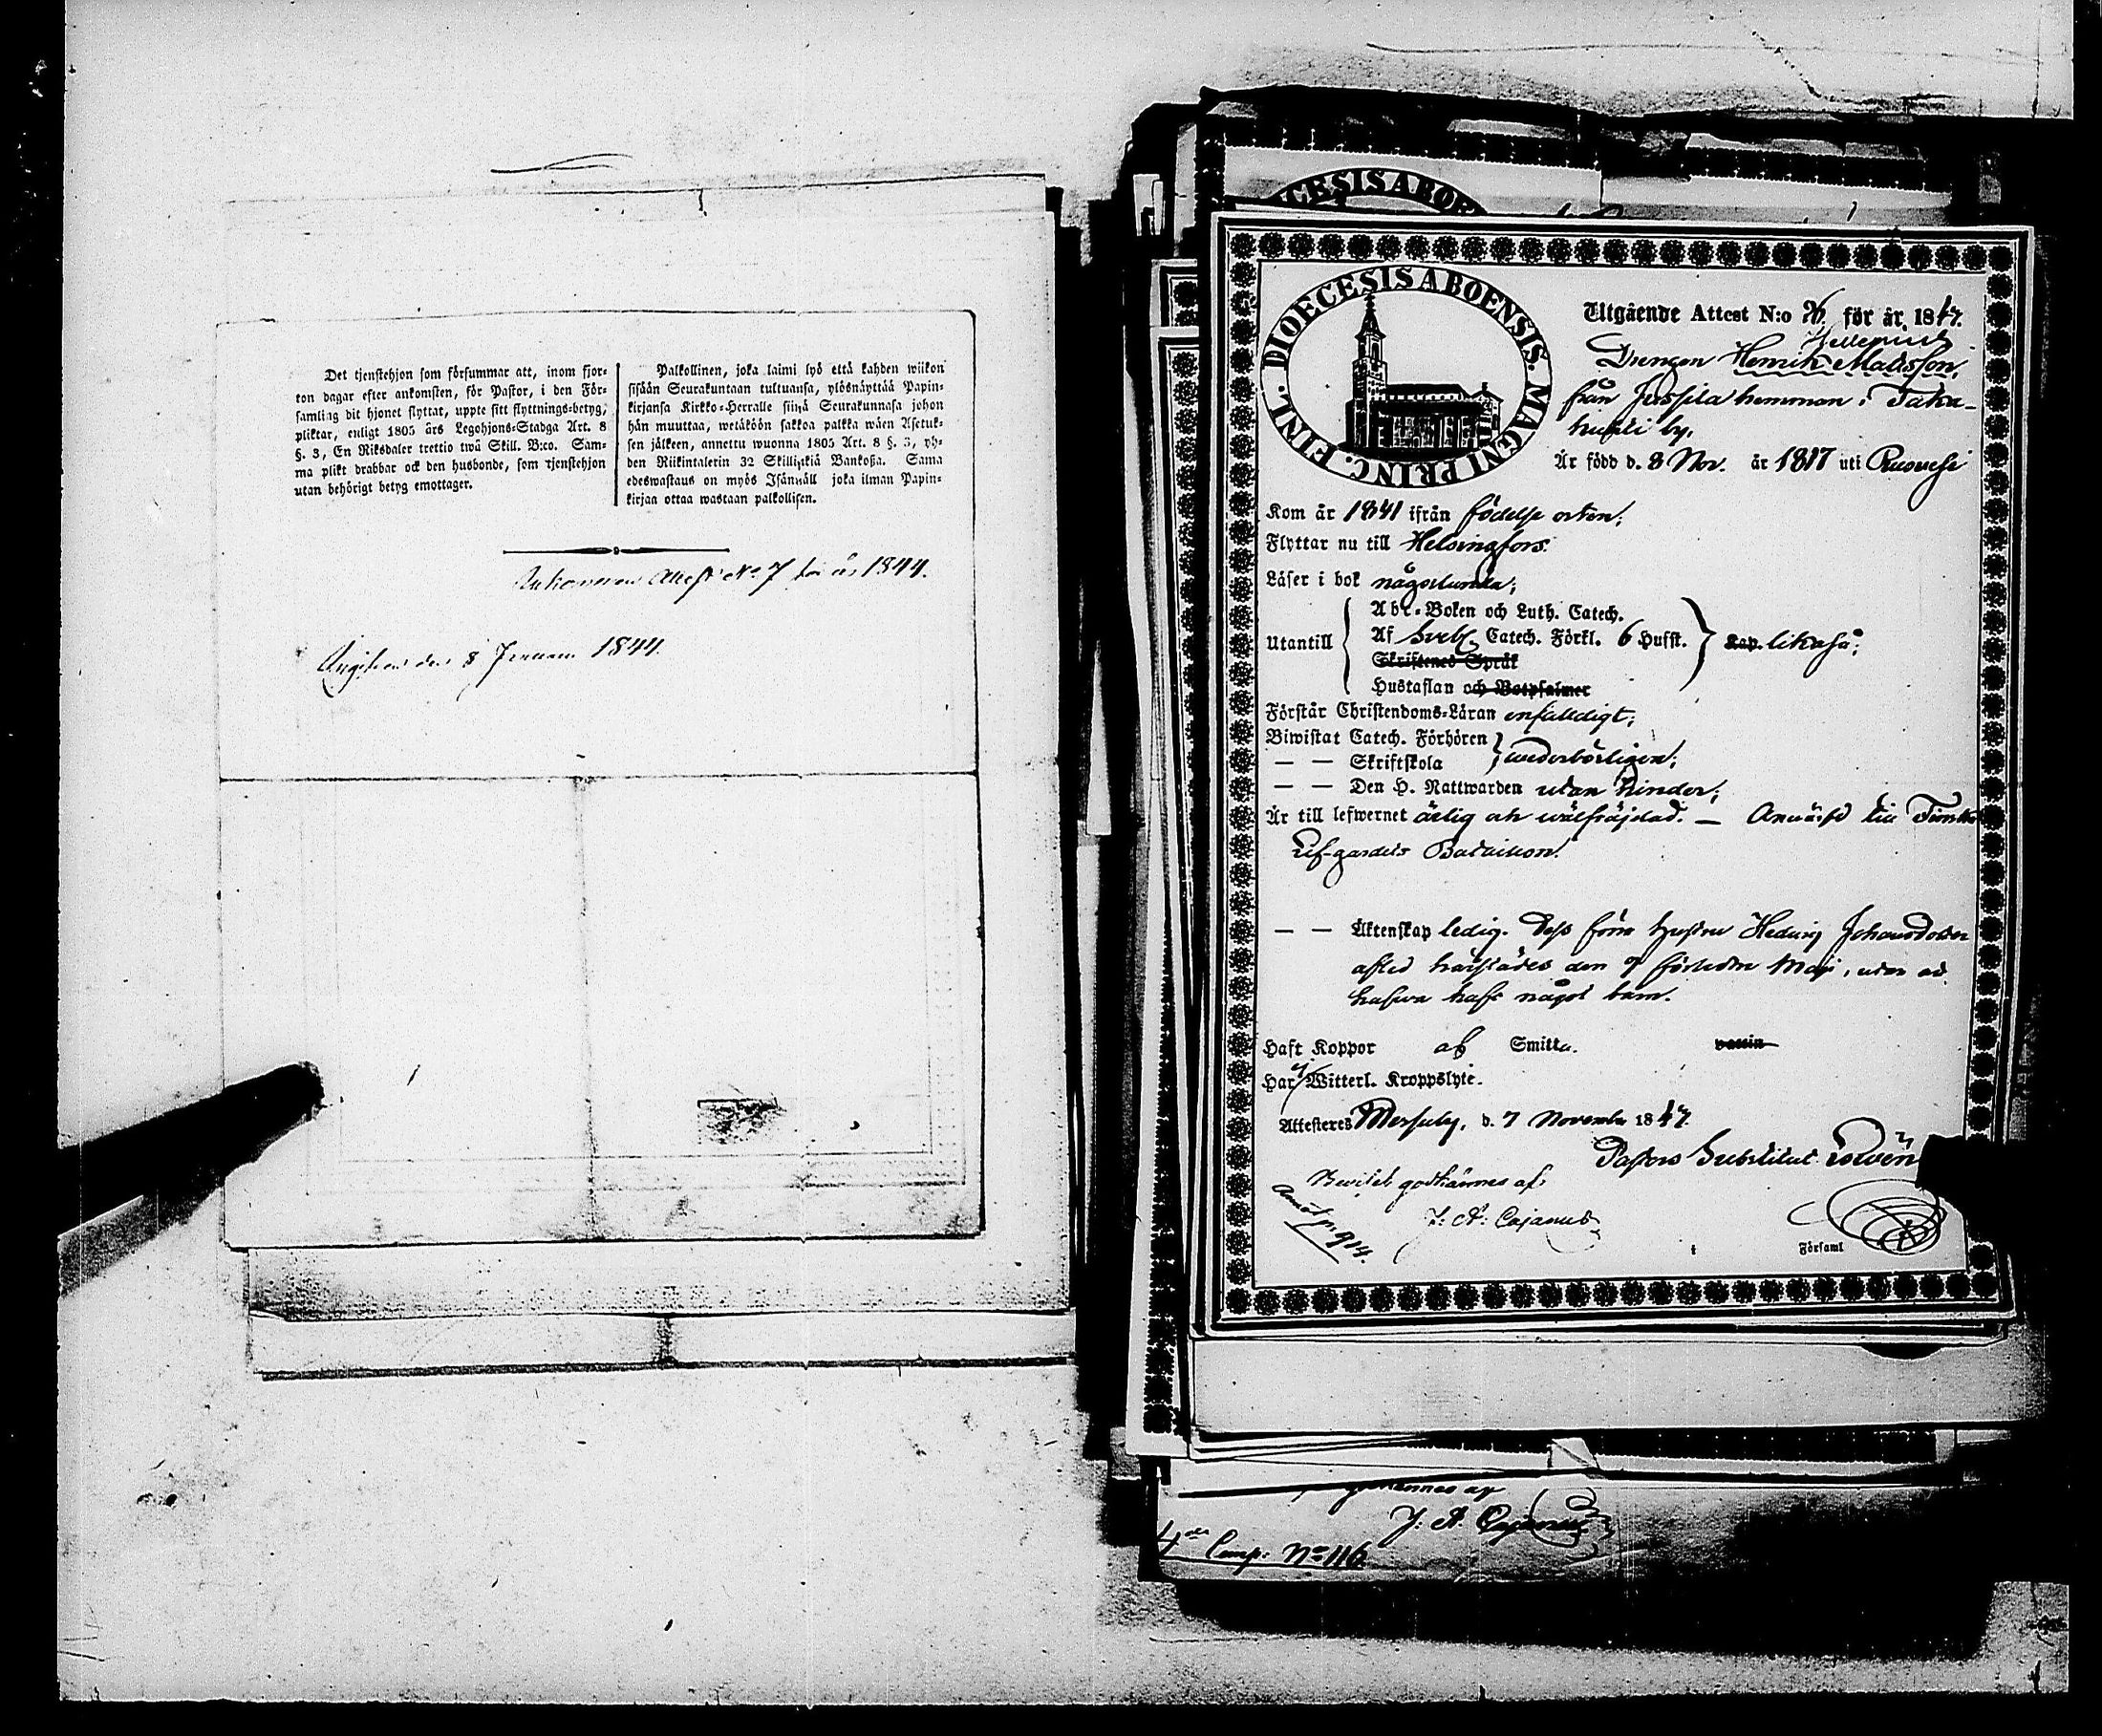 Det tjenstehjon som försummar att, inom fjor-
ton dagar efter ankomsten, för Pastor, i den För-
samling dit hjonet flyttat, uppte sitt flyttnings-betyg,
pliktar, enligt 1805 års Legohjons-Stadga Art. 8
§. 3, En Riksdaler trettio twå Skill. B:co. Sam-
ma plikt drabbar ock den husbonde, som tjenstehjon
utan behörigt betyg emottager.
Palkollinen, joka laimi lyö että kahden wiikon
sisään Seurakuntaan tultuansa, ylösnäyttää Papin-
kirjansa Kirkko-Herralle siinä Seurakunnasa johon
hän muuttaa, wetäköön sakkoa palkka wäen Asetuk-
sen jälkeen, annettu wuonna 1805 Art. 8 §. 3, yh-
den Riikintalerin 32 Skillinkiä Bankoßa. Sama
edeswastaus on myös Isännäll joka ilman Papin-
kirjaa ottaa wastaan palkollisen.
Ankommen Attest No 7 för år 1844.
den 8 Januari 1844.
DIOECESIS ABO
DIOECESIS ABOENSIS. MAGNI PRINC. FINL.
Utgående Attest N:o 26 för år 1847.
Drengen Henrik Matsson,
från Jussila hemman i Taka-
by.
Är född d. 8 Nov. år 1817 uti
Kom år 1841 ifrån födelse orten;
Flyttar nu till Helsingfors.
Läser i bok någorlunda;
Utantill
Abc-Boken och Luth. Catech.
Af Sveb. Catech. Förkl. 6 Hufst.
Skriftenes Språk
Hustaflan och Botpsalmer
Kap. likaså;
Förstår Christendoms-Läran enfalldigt;
Biwistat Catech. Förhören
— — Skriftskola
wederbörligen;
— — Den H. Nattwarden utan hinder;
Är till lefwernet ärlig och wälfräjdad. — Anwärfd till Finska
Lif-gardets Bataillon.
— — Äktenskap ledig. Dess förra hustru Hedvig Johansdotter
afled härstädes den 9 förledne Maji, utan at
hafwa haft något barn.
Haft Koppor af Smitta. vaccin
Har ej Witterl. Kroppslyte.
Attesteres d. 7 November 1847.
Pastors Substitut
Bevitet godkännes af:
J: A: Cajanus
Annot. p. 914.
Församl
godkännes af
J: A: Cajanus
4de Comp: No 116